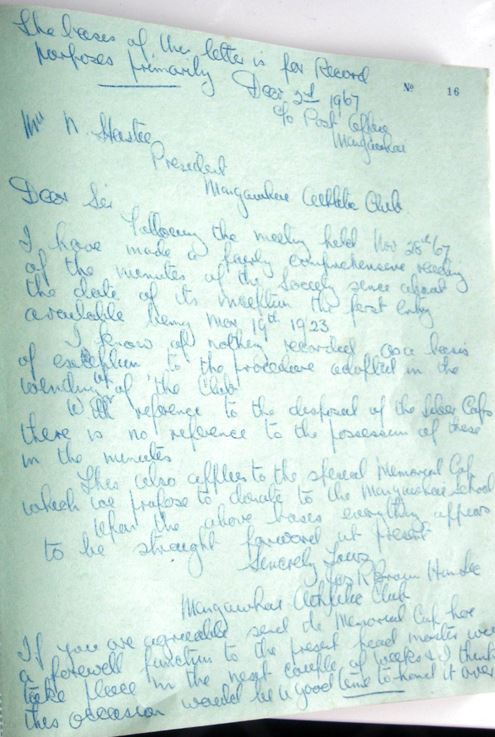 The bases of this letter is for Record
purposes primarily Decr 2nd 1967
No 16
c/o Post Office
Mangawhai
Mr N.
President
Mangawhai Athletic Club
Dear Sir
Following the meeting held Nov 28th/67
I have made a fairly comprehensive reading
of the minutes of the Society since about
the date of its inception the first entry
available being Mar 19th 1923
I know of nothing recorded as a basis
of exception to the procedure adopted in the
winding up of 'the Club'
With reference to the disposal of the Silver Cups
there is no reference to the possession of these
in the minutes
This also applies to the special Memorial Cup
which we propose to donate to the Mangawhai School
Upon the above bases everything appears
to be straight forward at present
Sincerely Yours
Mangawhai Athletic Club
If you are agreeable send the Memorial Cup here
a farewell function to the present head master will
take place in the next couple of weeks & I think
this occasion would be a good time to hand it over